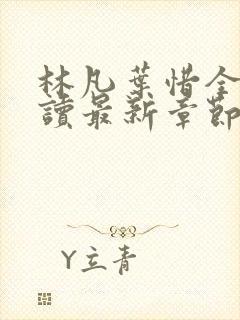 林凡葉惜全
讀最新章節
Y立青